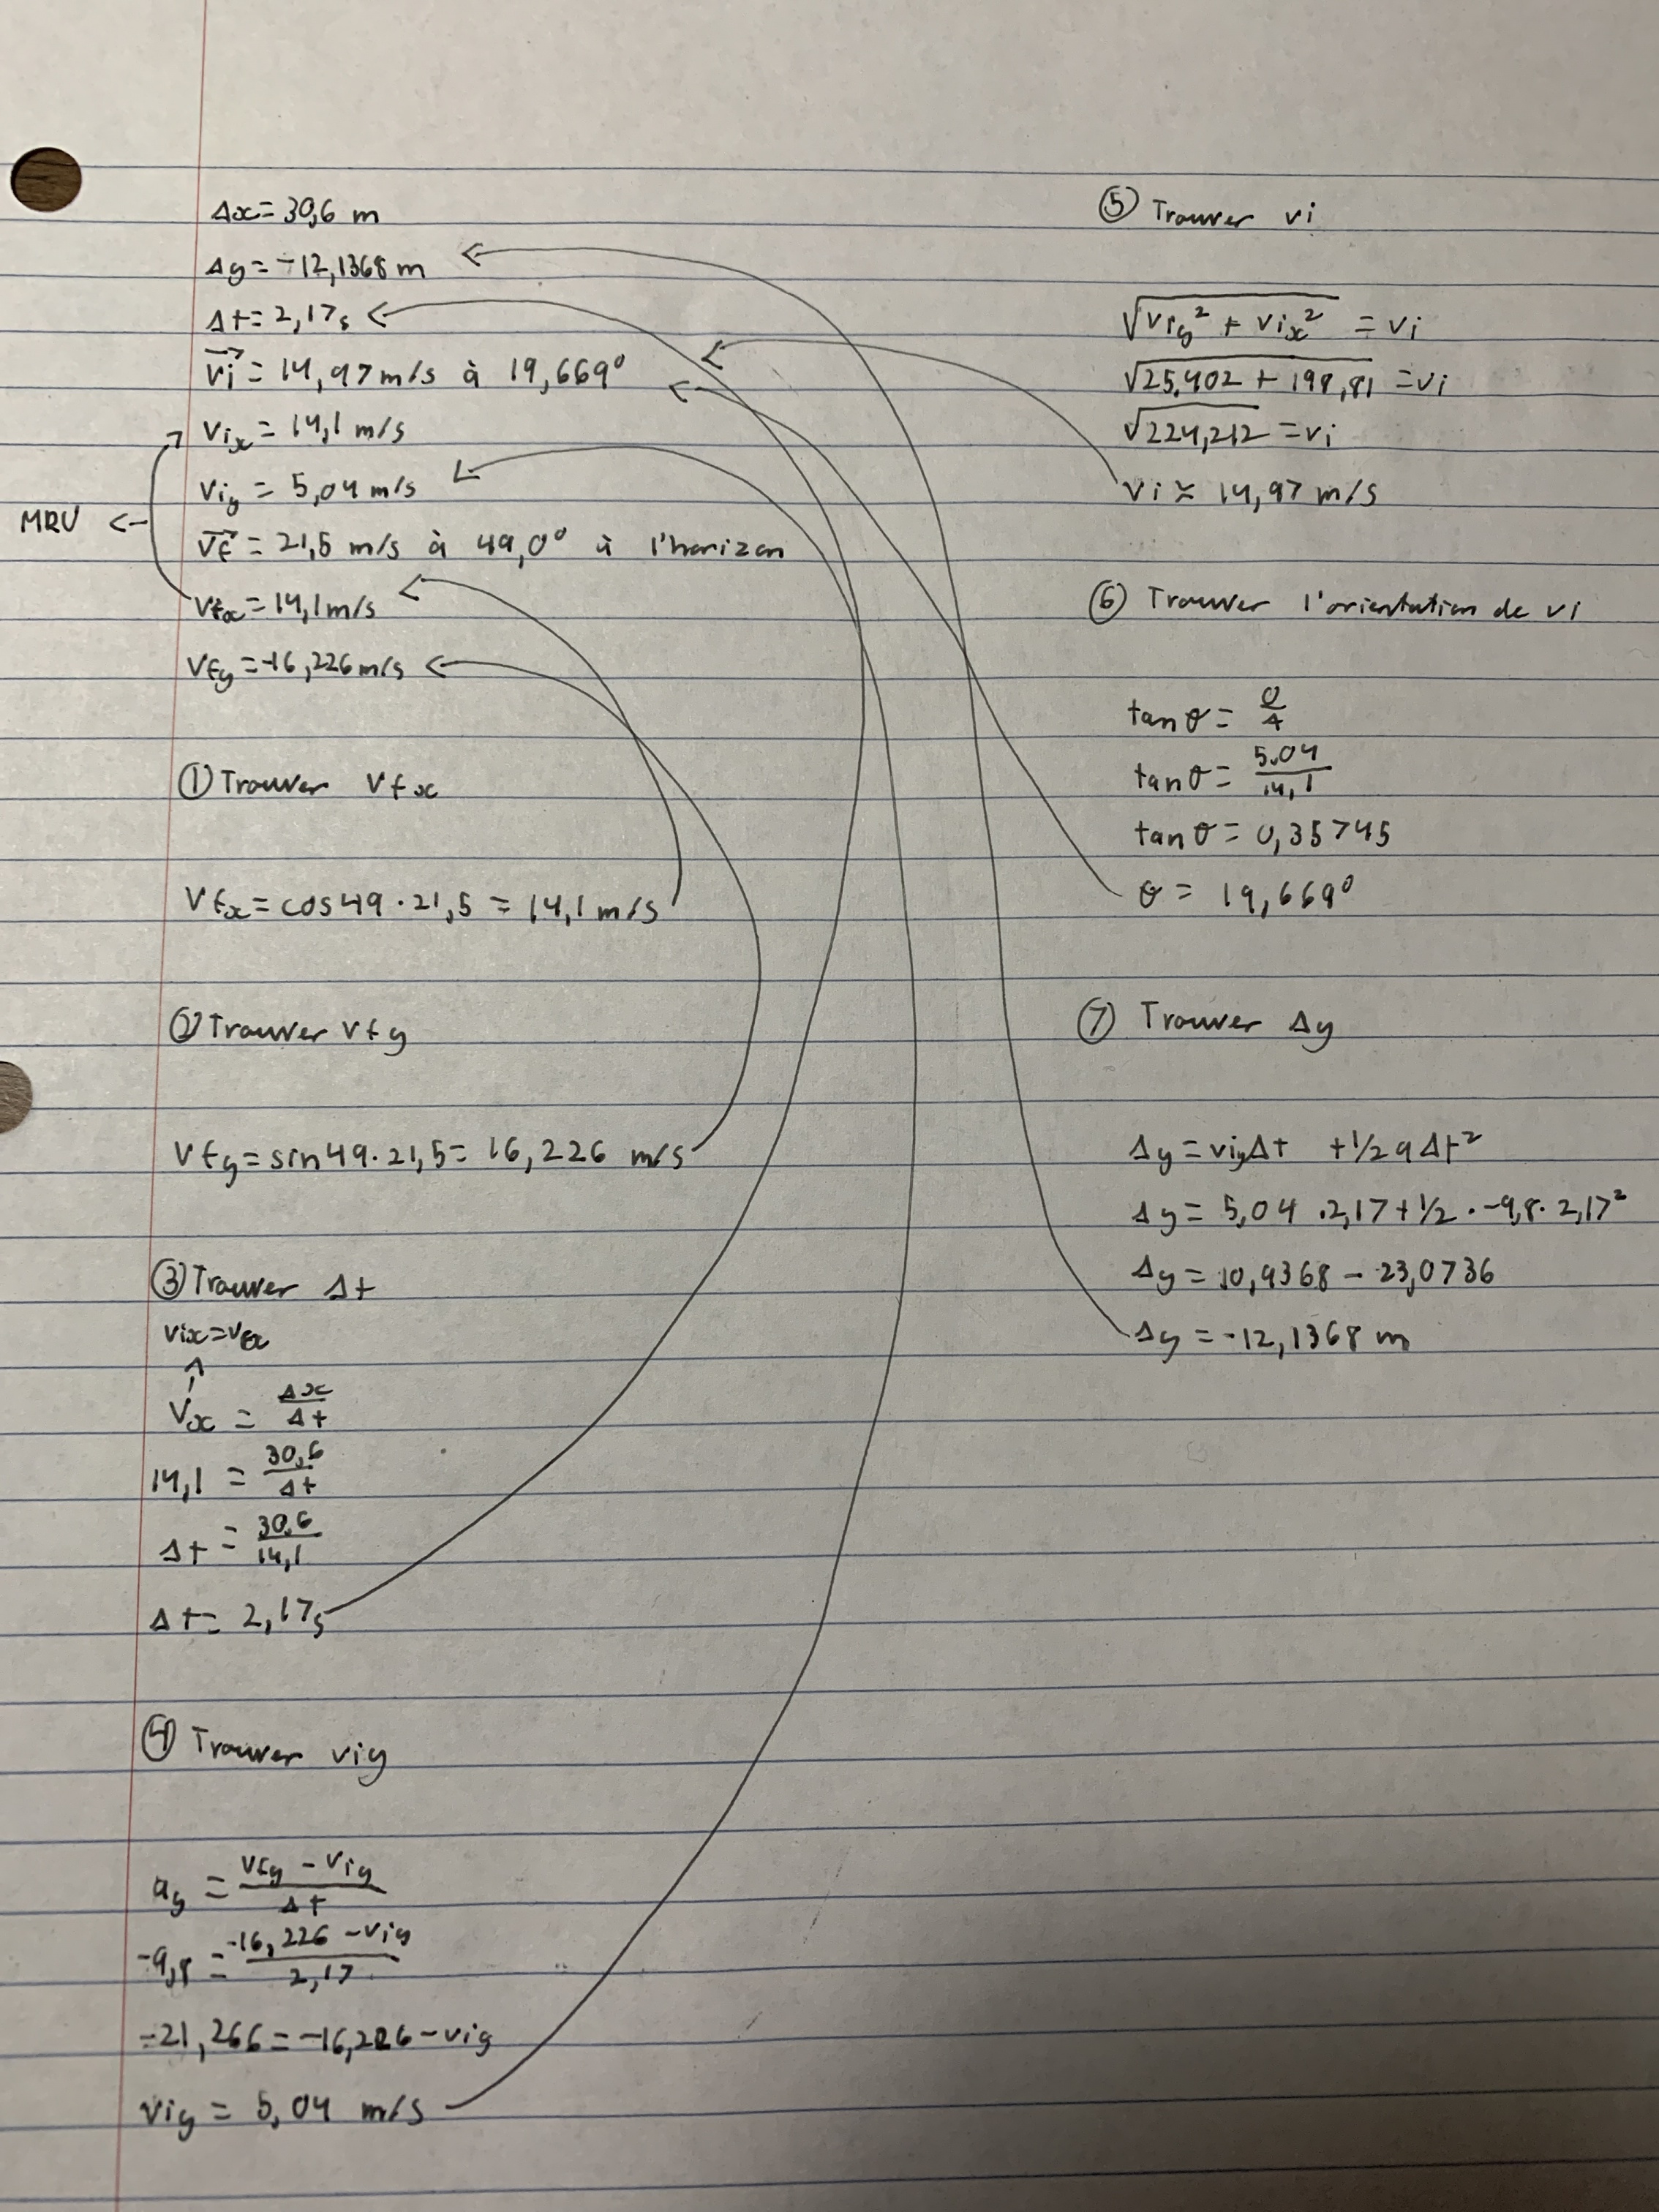 Δx = 30,6 m
Δy = -12,1368 m
Δt = 2,17s
vi = 14,97 m/s à 19,669°
vix = 14,1 m/s
viy = 5,04 m/s
MRU
vf = 21,5 m/s à 49,0° à l'horizon
vfx = 14,1 m/s
vfy = -16,226 m/s
① Trouver vfx
vfx = cos49 · 21,5 = 14,1 m/s
② Trouver vfy
vfy = sin49 · 21,5 = 16,226 m/s
③ Trouver Δt
vix = vfx
vx = Δx/Δt
14,1 = 30,6/Δt
Δt = 30,6/14,1
Δt = 2,17s
④ Trouver viy
ay = vfy - viy/Δt
-9,8 = -16,226 - viy/2,17
-21,266 = -16,226 - viy
viy = 5,04 m/s
⑤ Trouver vi
√viy² + vix² = vi
√25,402 + 198,81 = vi
√224,212 = vi
vi ≈ 14,97 m/s
⑥ Trouver l'orientation de vi
tan θ = O/A
tan θ = 5,04/14,1
tan θ = 0,35745
θ = 19,669°
⑦ Trouver Δy
Δy = viyΔt + 1/2 aΔt²
Δy = 5,04 · 2,17 + 1/2 · -9,8 · 2,17²
Δy = 10,9368 - 23,0736
Δy = -12,1368 m